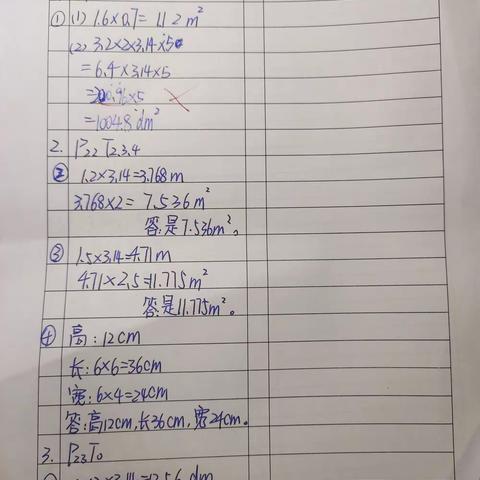 ① (1) 1.6×0.7=1.12m²
(2) 3.2×2×3.14×5
=6.4×3.14×5
=20.96×5
=1004.8dm²
2. P22 T2.3.4
② 1.2×3.14=3.768m
3.768×2=7.536m²
答:是7.536m²。
③ 1.5×3.14=4.71m
4.71×2.5=11.775m²
答:是11.775m²。
④ 高:12cm
长:6×6=36cm
宽:6×4=24cm
答:高12cm,长36cm,宽24cm。
3. P23T